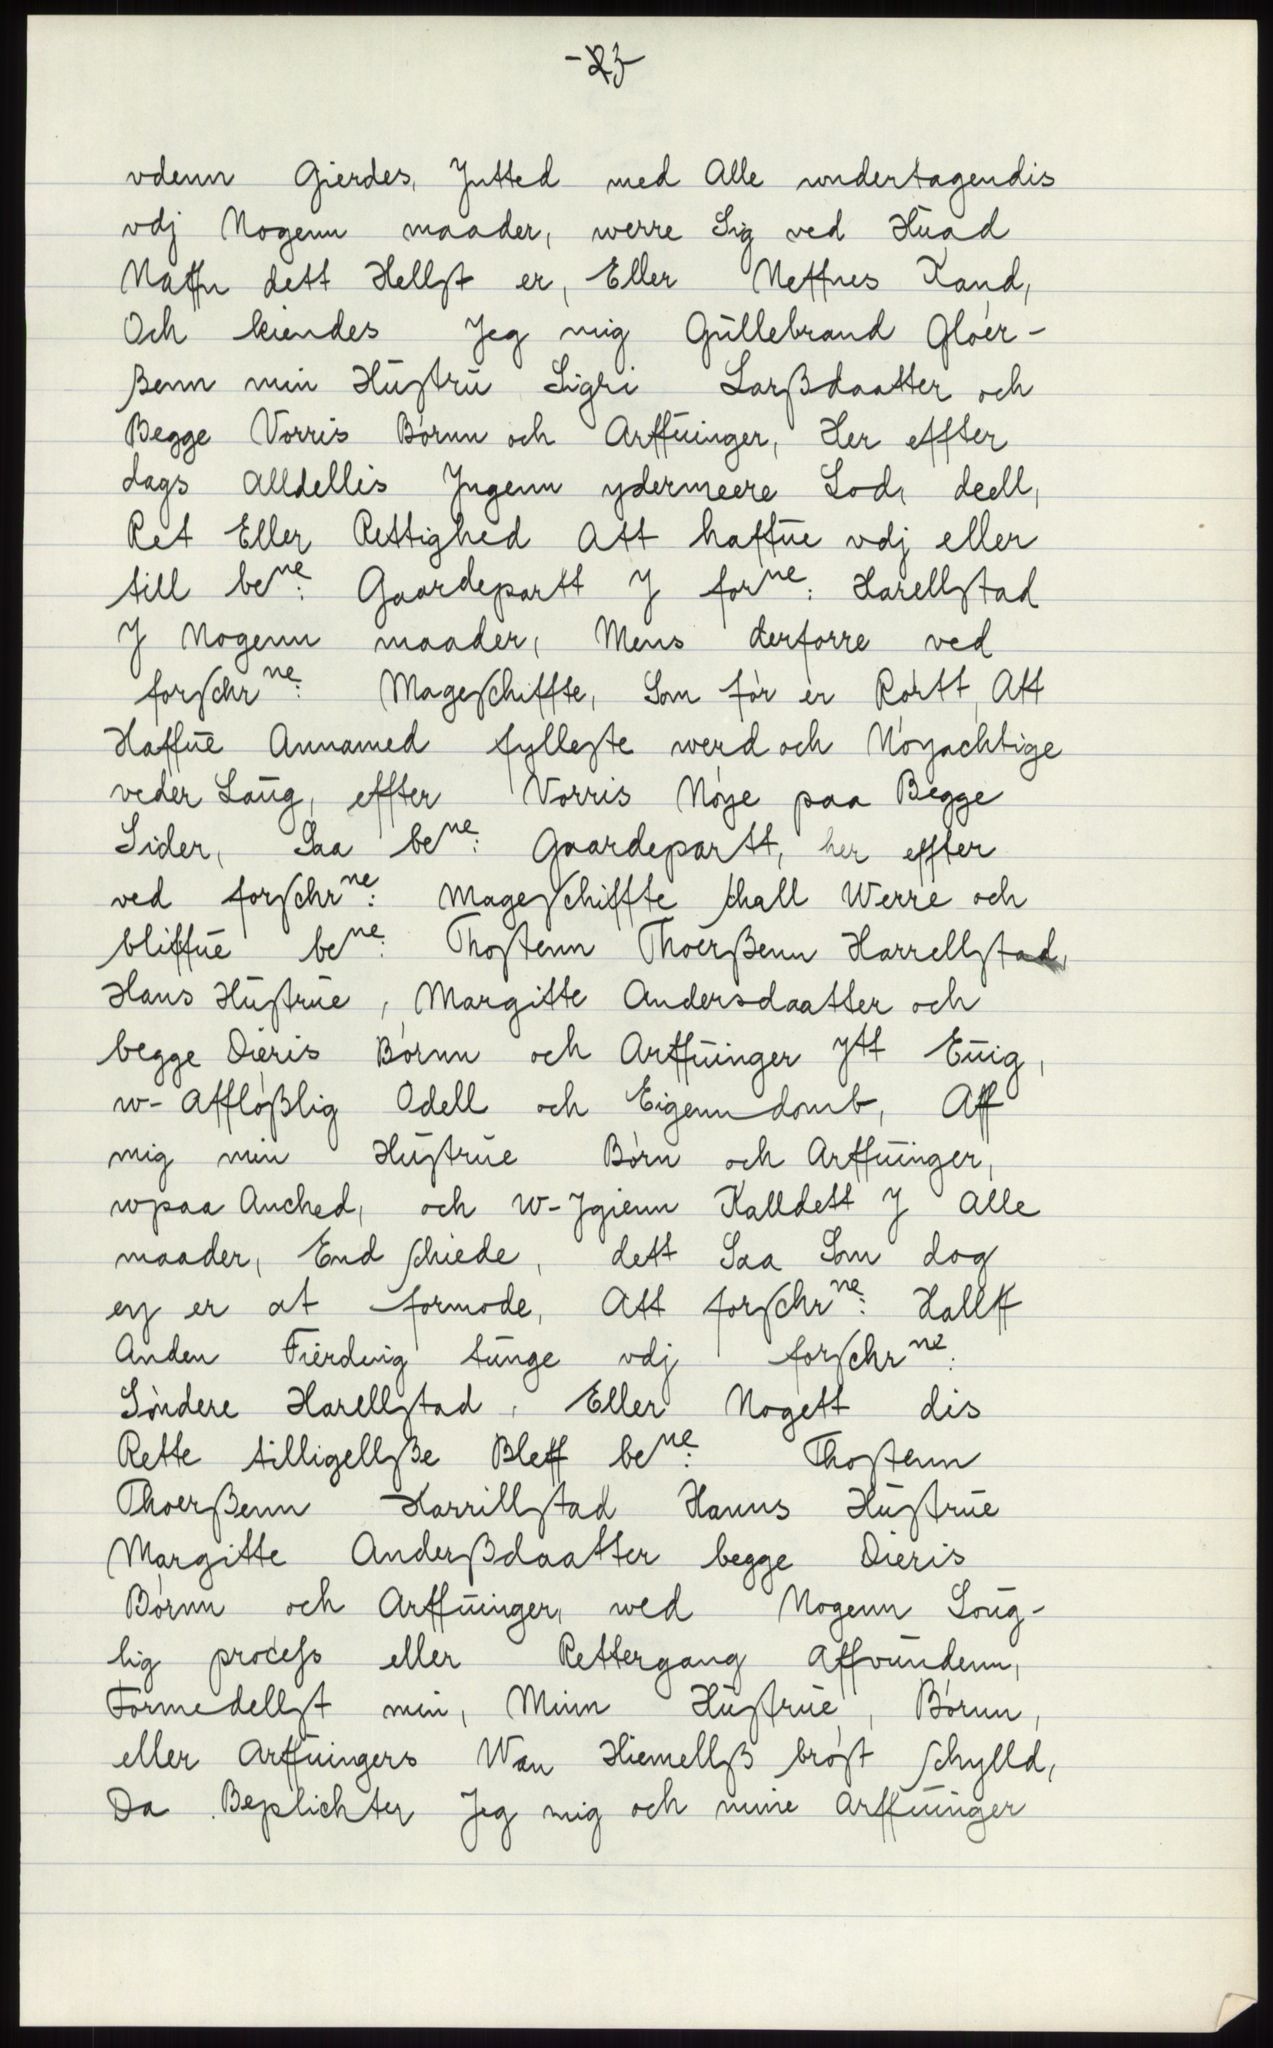 -23
vdenn Gierdes, Jntted med Alle undertagendis
vdj Nogenn maader, werre Sig ved Huad
Naffn dett Hellst er, Eller Neffnes Kand,
Och kiendes Jeg mig Gūllebrand Gloer-
ßenn min Hūstrū Sigri Larßdaatter och
Begge Vorris Børnn och Arffūinger, Her effter
dags Alldellis Jngenn ydermeere Lod, deell,
Ret Eller Rettighed Att haffūe vdj eller
till be<sup>ne</sup>: Gaardepartt J for<sup>ne</sup>: Harellstad
J Nogenn maader, Mens derforre ved
forschr<sup>ne</sup>: Mageschiffte, Som før er Rørtt, Att
Haffūe Annamed fylleste werd och Nøyachtige
veder Laūg, effter Vorris Nøye paa Begge
Sider, Saa be<sup>ne</sup>: Gaardepartt, her effter
ved forschr<sup>ne</sup>: Mageschiffte schall Werre och
bliffūe be<sup>ne</sup>: Thostenn Thoerßenn Harrellstad,
Hans Hūstrūe, Margitte Andersdaatter och
begge Dieris Børnn och Arffūinger ytt Eūig,
w-Affløßlig Odell och Eigenndomb, Aff
mig min Hūstrūe Børn och Arffūinger,
wpaa Anched, och w-Jgienn Kalldett J Alle
maader, End schiede, dett Saa Som dog
ey er at formode, Att forschr<sup>ne</sup>: Hallff
Anden Fierding tūnge vdj forschr<sup>ne</sup>:
Søndere Harellstad, Eller Nogett dis
Rette tilligellße Bleff be<sup>ne</sup>: Thostenn
Thoerßenn Harrillstad Hanns Hūstrūe
Margitte Anderßdaatter begge Dieris
Børnn och Arffūinger, wed Nogenn Loūg-
lig process eller Rettergang Affvūndenn,
Formedellst min, Minn Hūstrūe, Børnn,
eller Arffūingers Wan Hiemellß brøst schylld,
Da Beplichter Jeg mig och mine Arffūinger